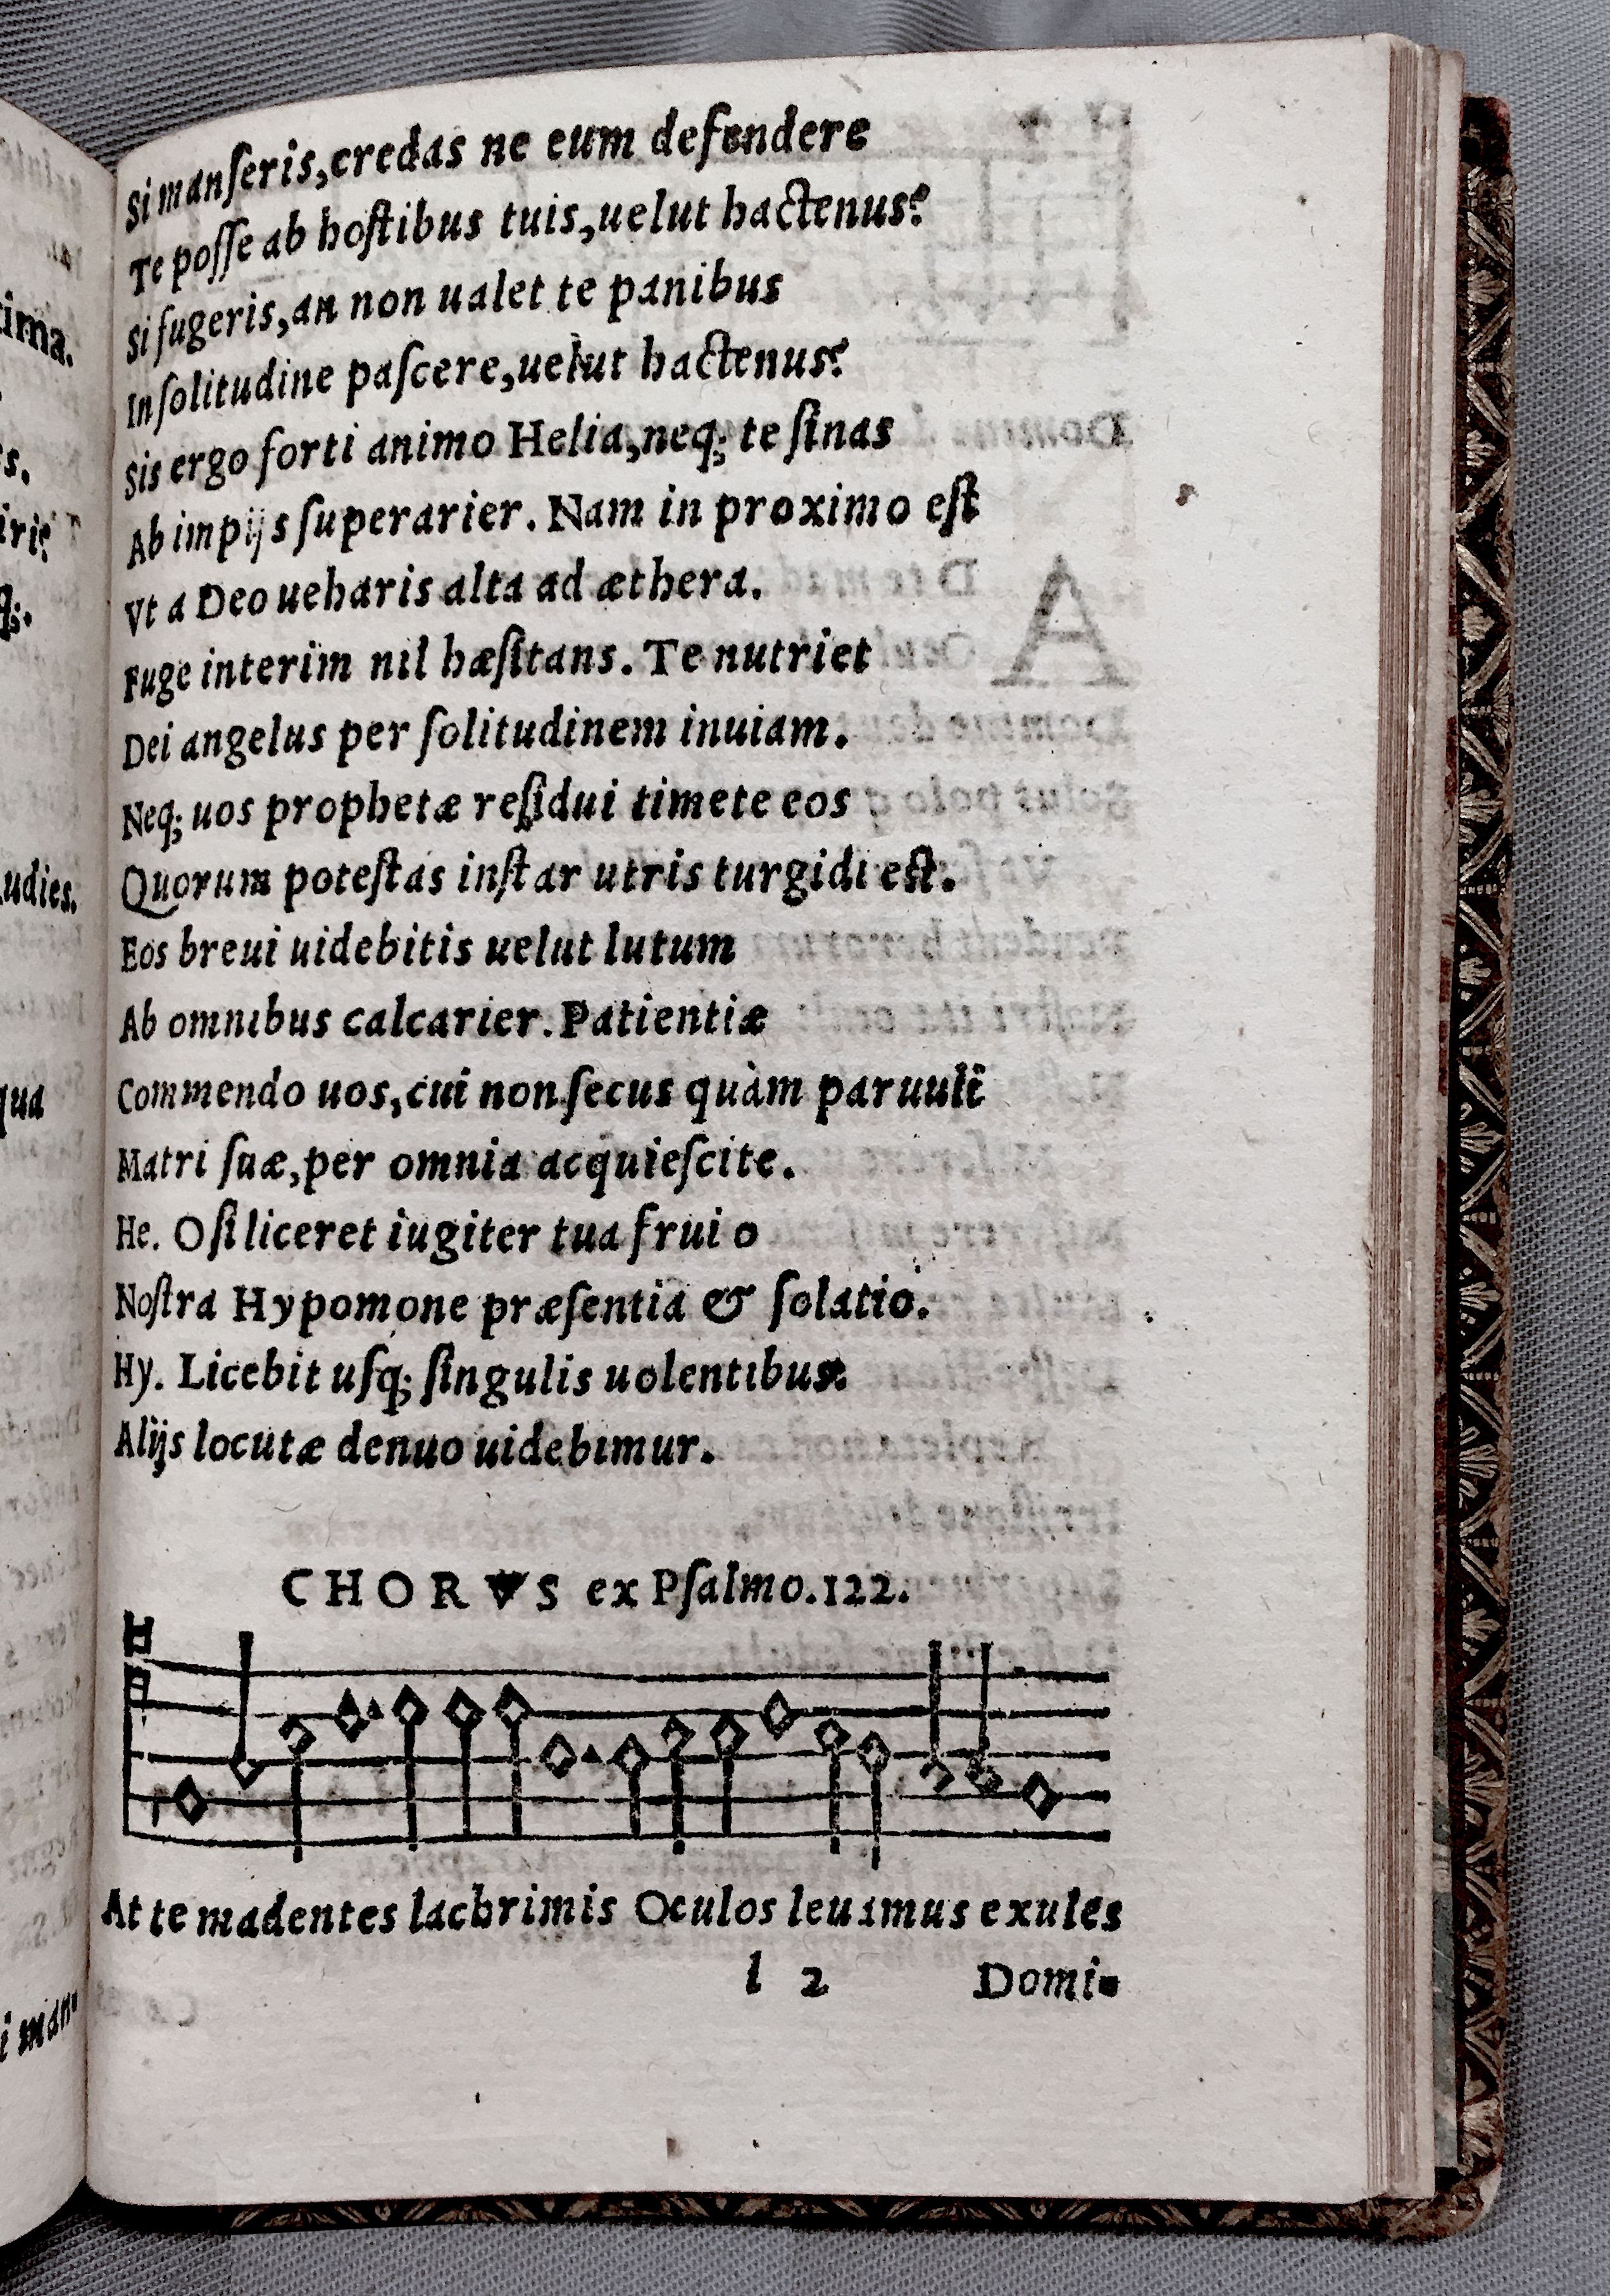 Si manſeris, credas ne eum defendere
Te poſſe ab hoſtibus tuis, uelut hactenus?
Si fugeris, an non ualet te panibus
In ſolitudine paſcere, uelut hactenus?
Sis ergo forti animo Helia, neq; te ſinas
Ab impijs ſuperarier. Nam in proximo eſt
Vt a Deo ueharis alta ad æthera.
Fuge interim nil hæſitans. Te nutriet
Dei angelus per ſolitudinem inuiam.
Neq; uos prophetæ reſidui timete eos
Quorum poteſtas inſtar utris turgidi eſt.
Eos breui uidebitis uelut lutum
Ab omnibus calcarier. Patientiæ
Commendo uos, cui non ſecus quàm paruuli
Matri ſuæ, per omnia acquieſcite.
He. O ſi liceret iugiter tua frui o
Noſtra Hypomone præſentia & ſolatio.
Hy. Licebit uſq; ſingulis uolentibus.
Alijs locutæ denuo uidebimur.
CHORVS ex Pſalmo. 122.
At te madentes lachrimis Oculos leuamus exules
l 2 Domi-
tima.
s.
q;.
udies.
qua
i man-